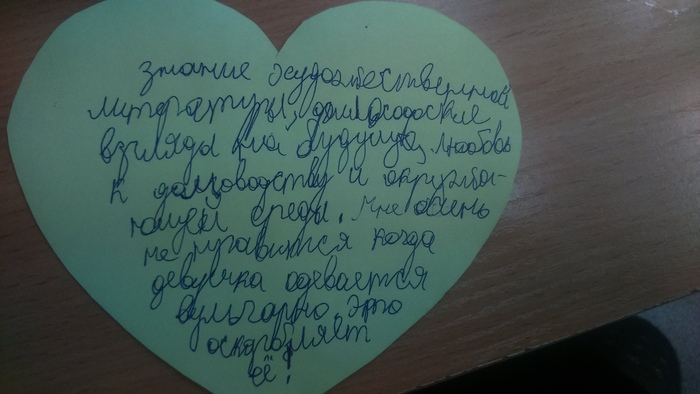 знание художественной
литературы, философские
взгляды на будущую, любовь
к домоводству и окружа-
ющей среды. Мне очень
не нравится когда
девушка одевается
вульгарно. Это
оскорбляет
её!